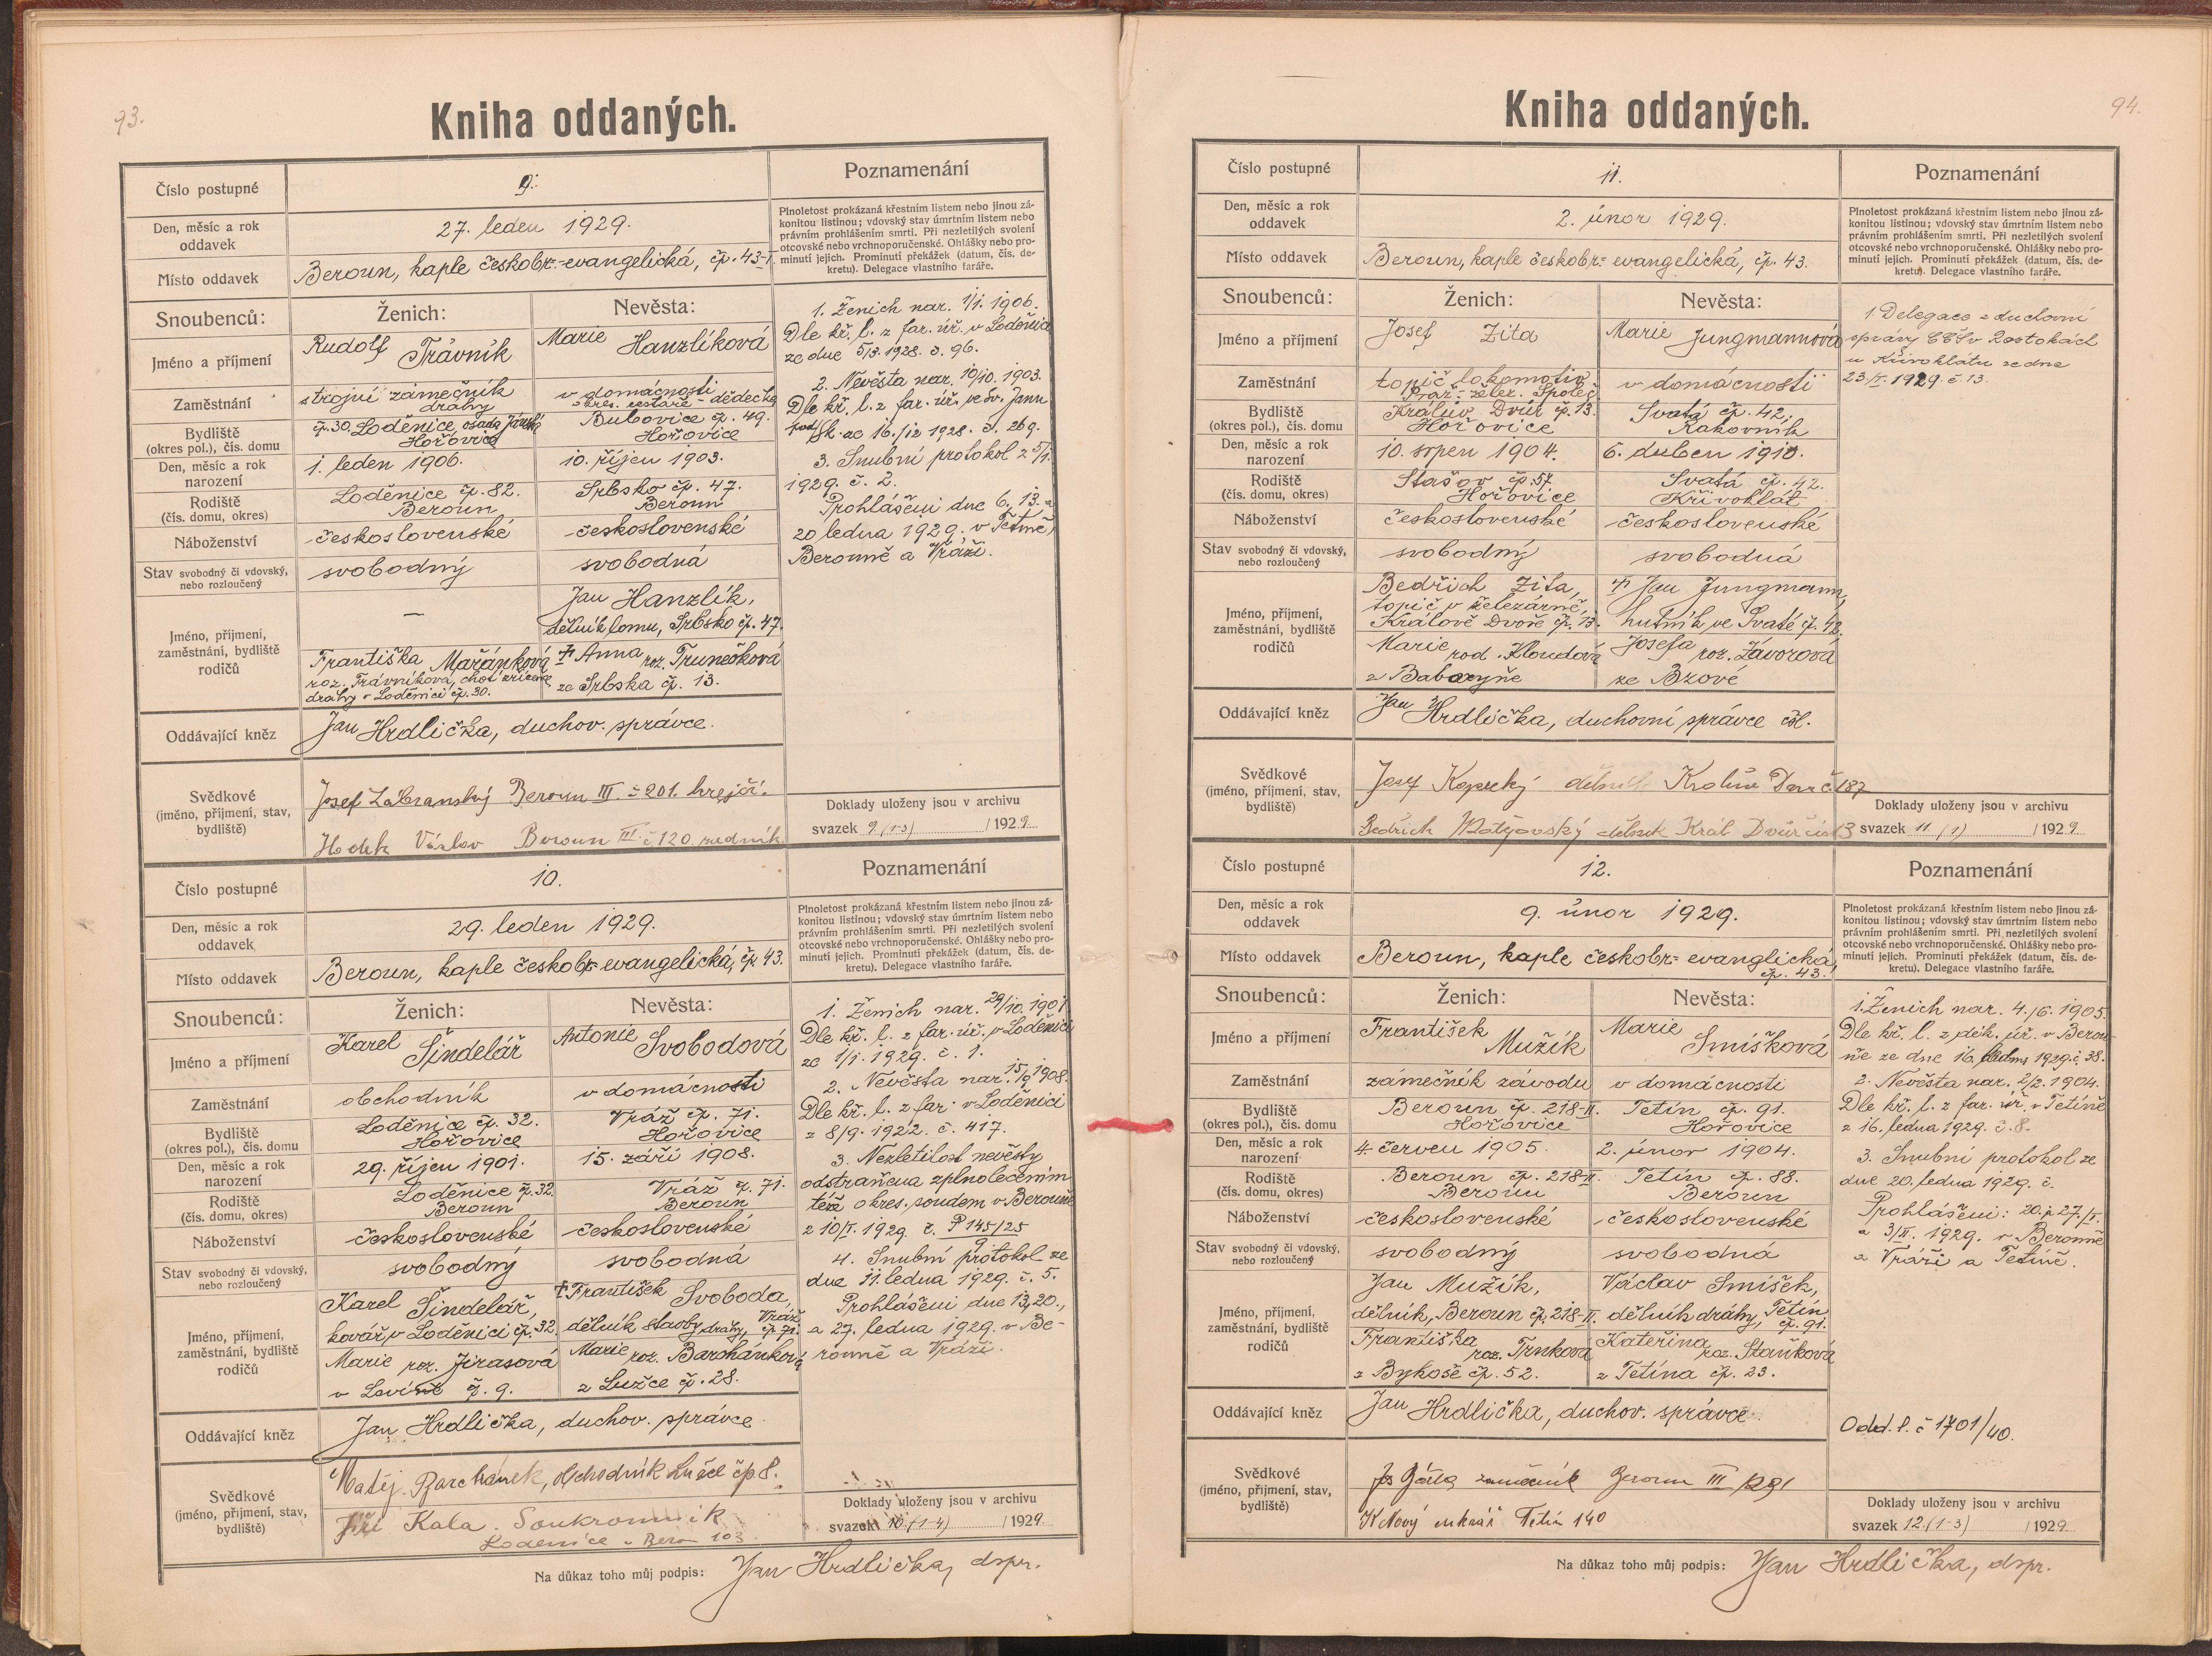 93.
Kniha oddaných.
Číslo postupné
9.
Poznamenání
Den, měsíc a rok oddavek
27. leden 1929.
Místo oddavek
Beroun, kaple českobr.-evangelická, čp. 43-I
Plnoletost prokázaná křestním listem nebo jinou zá-
konitou listinou; vdovský stav úmrtním listem nebo
právním prohlášením smrti. Při nezletilých svolení
otcovské nebo vrchnoporučenské. Ohlášky nebo pro-
minutí jejich. Prominutí překážek (datum, čís. de-
kretu). Delegace vlastního faráře.
Snoubenců:
Ženich:
Nevěsta:
Jméno a příjmení
Rudolf Trávník
Marie Hanzlíková
Zaměstnání
strojní zámečník
dráhy
v domácnosti
okres. cestáře dědečka
Bydliště
(okres pol.), čís. domu
čp. 30 Loděnice, osada
Hořovice
Bubovice čp. 49.
Hořovice
Den, měsíc a rok narození
1. leden 1906.
10. říjen 1903.
Rodiště
(čís. domu, okres)
Loděnice čp. 82.
Beroun
Srbsko čp. 47.
Beroun
Náboženství
československé
československé
Stav svobodný či vdovský,
nebo rozloučený
svobodný
svobodná
Jméno, příjmení,
zaměstnání, bydliště
rodičů
—
Jan Hanzlík,
dělník lomu, Srbsko čp. 47.
Františka Mařánková
roz. Trávníková, choť zřízence
dráhy v Loděnici čp. 30.
† Anna roz. Trunečková
ze Srbska čp. 13.
Oddávající kněz
Jan Hrdlička, duchov. správce.
Svědkové
(jméno, příjmení, stav,
bydliště)
Josef Zábranský Beroun III. č 201. krejčí.
Hodek Václav Beroun III č 120
1. Ženich nar. 1/1. 1906.
Dle kř. l. z far. úř. v Loděnici
ze dne 5/3. 1928. č. 96.
2. Nevěsta nar. 10/10. 1903.
Dle kř. l. z far. úř. ve sv. Janu
pod Sk. ze 16./12 1928. č. 269.
3. Snubní protokol z 5/1.
1929. č. 2.
Prohlášeni dne 6, 13. a
20 ledna 1929. v Tetíně,
Berouně a Vráži.
Doklady uloženy jsou v archivu
svazek 9 (1-3) /1929
Číslo postupné
10.
Poznamenání
Den, měsíc a rok oddavek
29. leden 1929.
Místo oddavek
Beroun, kaple českobr-evangelická, čp 43.
Plnoletost prokázaná křestním listem nebo jinou zá-
konitou listinou; vdovský stav úmrtním listem nebo
právním prohlášením smrti. Při nezletilých svolení
otcovské nebo vrchnoporučenské. Ohlášky nebo pro-
minutí jejich. Prominutí překážek (datum, čís. de-
kretu). Delegace vlastního faráře.
Snoubenců:
Ženich:
Nevěsta:
Jméno a příjmení
Karel Šindelář
Antonie Svobodová
Zaměstnání
obchodník
v domácnosti
Bydliště
(okres pol.), čís. domu
Loděnice čp. 32.
Hořovice
Vráž čp. 71.
Hořovice
Den, měsíc a rok narození
29. říjen 1901.
15. září 1908.
Rodiště
(čís. domu, okres)
Loděnice čp. 32.
Beroun
Vráž čp. 71.
Beroun
Náboženství
československé
československé
Stav svobodný či vdovský,
nebo rozloučený
svobodný
svobodná
Jméno, příjmení,
zaměstnání, bydliště
rodičů
Karel Šindelář,
kovář v Loděnici čp. 32.
† František Svoboda,
dělník stavby dráhy, Vráž čp. 71.
Marie roz. Jirasová
v čp. 9.
Marie roz. Barchánková
z Lužce čp. 28.
Oddávající kněz
Jan Hrdlička, duchov. správce
Svědkové
(jméno, příjmení, stav,
bydliště)
Matěj Barchánek, obchodník Lužce čp 8.
Jiří Kala. Soukromník
Lodenice u Beroun 103.
1. Ženich nar. 29/10. 1901
Dle kř. l. z far. úř. v Loděnici
ze 1/1. 1929. č. 1.
2. Nevěsta nar. 15/9 1908.
Dle kř. l. z far. v Loděnici
z 8/9. 1922. č. 417.
3. Nezletilost nevěsty
odstraněna zplnoletěním
téže okres. soudem v Berouně
z 10/I. 1929. č. P 145/25
9.
4. Snubní protokol ze
dne 11. ledna 1929. č. 5.
Prohlášeni dne 13, 20.,
a 27. ledna 1929. v Be-
rouně a Vráži.
Doklady uloženy jsou v archivu
svazek 10. (1-4) /1929.
Na důkaz toho můj podpis: Jan Hrdlička, dspr.
94.
Kniha oddaných.
Číslo postupné
11.
Poznamenání
Den, měsíc a rok oddavek
2. únor 1929.
Místo oddavek
Beroun, kaple českobr-evangelická, čp. 43.
Plnoletost prokázaná křestním listem nebo jinou zá-
konitou listinou; vdovský stav úmrtním listem nebo
právním prohlášením smrti. Při nezletilých svolení
otcovské nebo vrchnoporučenské. Ohlášky nebo pro-
minutí jejich. Prominutí překážek (datum, čís. de-
kretu). Delegace vlastního faráře.
Snoubenců:
Ženich:
Nevěsta:
Jméno a příjmení
Josef Zita
Marie Jungmannová
Zaměstnání
topič lokomotiv
Praž-želez. Společ.
v domácnosti
Bydliště
(okres pol.), čís. domu
Králův Dvůr čp. 13.
Hořovice
Svatá čp. 42.
Rakovník
Den, měsíc a rok narození
10. srpen 1904.
6. duben 1910.
Rodiště
(čís. domu, okres)
Stašov čp. 57
Hořovice
Svatá čp. 42.
Křivoklát
Náboženství
československé
československé
Stav svobodný či vdovský,
nebo rozloučený
svobodný
svobodná
Jméno, příjmení,
zaměstnání, bydliště
rodičů
Bedřich Zita,
topič v železárně,
Králově Dvoře čp. 13.
† Jan Jungmann,
hutník ve Svaté čp. 42.
Marie rod. Kloudová
z Baboryňe
Josefa roz. Závorová
ze Bzové
Oddávající kněz
Jan Hrdlička, duchovní správce čsl.
Svědkové
(jméno, příjmení, stav,
bydliště)
Josef Kopecký dělník Králův Dvůr č 187
Bedřich Matějovský dělník Král Dvůr čís 13
1 Delegace z duchovní
správy CČS v Roztokách
u Křivoklátu ze dne
23./I. 1929. č 13.
Doklady uloženy jsou v archivu
svazek 11 (1) /1929
Číslo postupné
12.
Poznamenání
Den, měsíc a rok oddavek
9. únor 1929.
Místo oddavek
Beroun, kaple českobr-evanglická
čp. 43.
Plnoletost prokázaná křestním listem nebo jinou zá-
konitou listinou; vdovský stav úmrtním listem nebo
právním prohlášením smrti. Při nezletilých svolení
otcovské nebo vrchnoporučenské. Ohlášky nebo pro-
minutí jejich. Prominutí překážek (datum, čís. de-
kretu). Delegace vlastního faráře.
Snoubenců:
Ženich:
Nevěsta:
Jméno a příjmení
František Mužík
Marie Smíšková
Zaměstnání
zámečník závodu
v domácnosti
Bydliště
(okres pol.), čís. domu
Beroun čp. 218-II.
Hořovice
Tetín čp. 91.
Hořovice
Den, měsíc a rok narození
4. červen 1905.
2. únor 1904.
Rodiště
(čís. domu, okres)
Beroun čp. 218-II.
Beroun
Tetín čp. 88.
Beroun
Náboženství
československé
československé
Stav svobodný či vdovský,
nebo rozloučený
svobodný
svobodná
Jméno, příjmení,
zaměstnání, bydliště
rodičů
Jan Mužík,
dělník, Beroun čp. 218-II.
Václav Smíšek,
dělník dráhy, Tetín čp. 91.
Františka roz. Trnková
z Bykoše čp. 52.
Kateřina roz. Staňková
z Tetína čp. 23.
Oddávající kněz
Jan Hrdlička, duchov. správce.
Svědkové
(jméno, příjmení, stav,
bydliště)
zámečník Beroun III
K Nový Tetín 140
1. Ženich nar. 4./6. 1905.
Dle kř. l. z děk. úř. v Berou-
ně ze dne 16. ledna 1929. č. 38.
2. Nevěsta nar. 2/2. 1904.
Dle kř. l. z far. úř. v Tetíně
z 16. ledna 1929. č. 8.
3. Snubní protokol ze
dne 20. ledna 1929. č.
Prohlášeni: 20. a 27./I.
a 3/II. 1929. v Berouně
a Vráži a Tetíně.
Odd. l. č 1701/40.
Doklady uloženy jsou v archivu
svazek 12. (1-3) /1929
Na důkaz toho můj podpis: Jan Hrdlička, dspr.